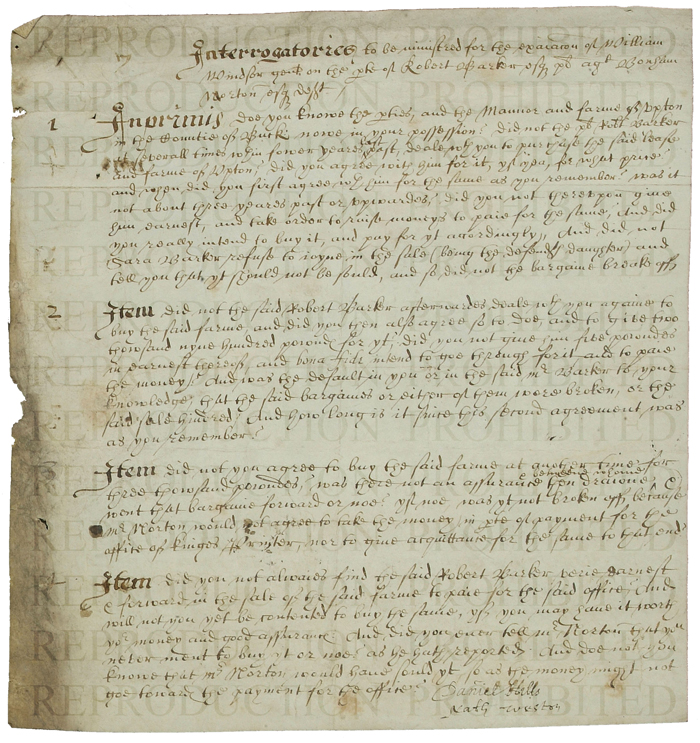 Interrogatories to be ministred for the exaiacon of William
Windsor gent on the pte of Robert Barker esqr plt agt Bonham
Norton esqr deft
1 Inprimis doe you knowe the pties, and the Mannor and farme of Upton
in the Countie of Buck nowe in your possession? did not the plt Robt Barker
att severall times wthin fower yeares past, deale wth you to purchase the said lease
and farme of Upton? did you agree with him for it, yf yea, for what price?
and when did you first agree wth him for the same as you remember? was it
not about three yeares past or upwardes? did you not therevpon give
him earnest, and take order to raise moneys to paie for the same? And did
you really intend to buy it, and pay for yt acordingly, And did not
Sara Barker refuse to ioyne in the sale (being the defendts daughter) and
tell you that yt should not be sould, and so did not the bargaine breake off?
2 Item did not the said Robert Barker afterwardes deale wth you againe to
buy the said farme, and did you then also agree so to doe, and to give two
thowsand nyne hundred pownds for yt, did you not give him five powndes
in earnest thereof, and bona fide intend to goe through for it and to paie
the money? And was the default in you or in the said mr Barker to your
knowledge, that the said bargains or either of them were broken, or the
said sale hindred? And how long is it since this second agreement was
as you remember?
Item did not you agree to buy the said farme at another time for
betweene whome
three thowsand powndes, was there not an assurance then drawne
went that bargaine forward or noe? yf noe, was yt not broken off, because
mr Norton would not agree to take the money in pte of payment for the
office of kinges Printer, nor to give acquittance for the same to that end
4 Item did you not alwaies find the said Robert Barker verie earnest
& forward in the sale of the said farme to paie for the said office? And
will not you yet be contented to buy the same, yf you may have it worth
yor money and good assurance? And did you ever tell mr Norton that you
never ment to buy yt or noe as he hath reported? And doe not you
knowe that mr Norton would have sould yt so as the money might not
goe toward the payment for the office?
Daniel Hills
REPRODUCTION PROHIBITED